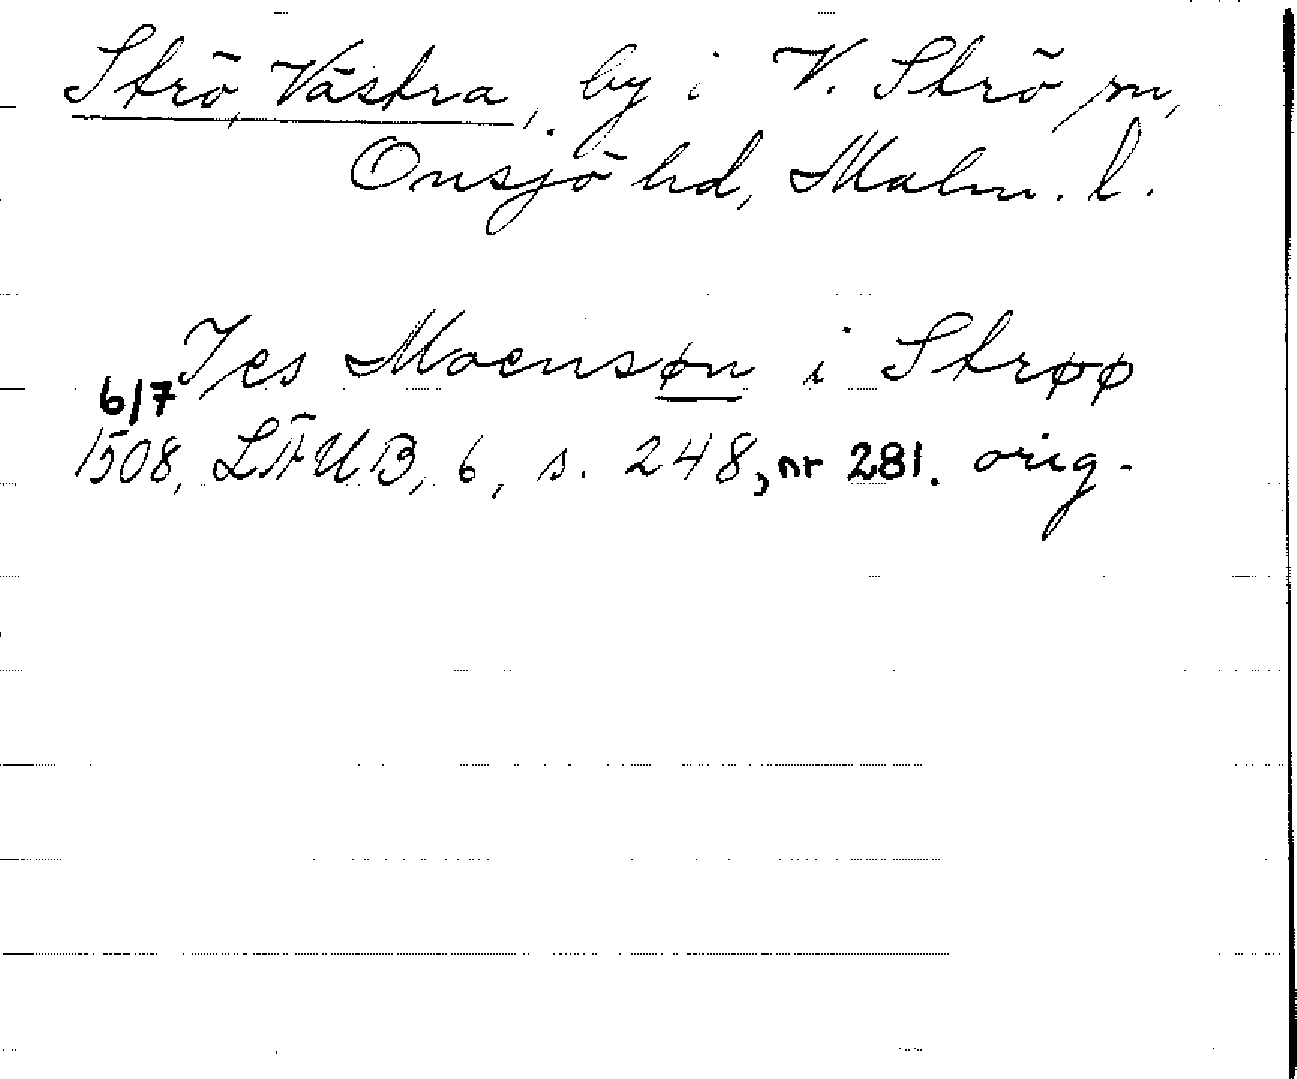 Strö, Västra, by i V. Strö sn,
Onsjö hd, Malm. l.
Jes Moensøn i Strøø
6/7
1508, LÄUB, 6, s. 248, nr 281. orig.